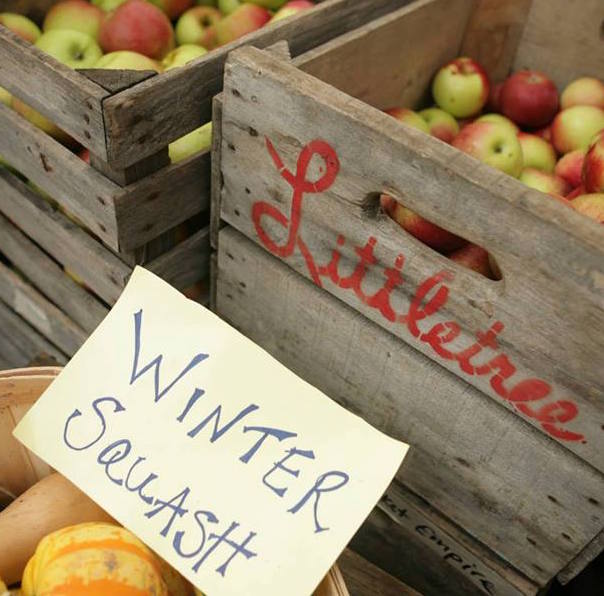 Littletree
WINTER
SQUASH
Empire